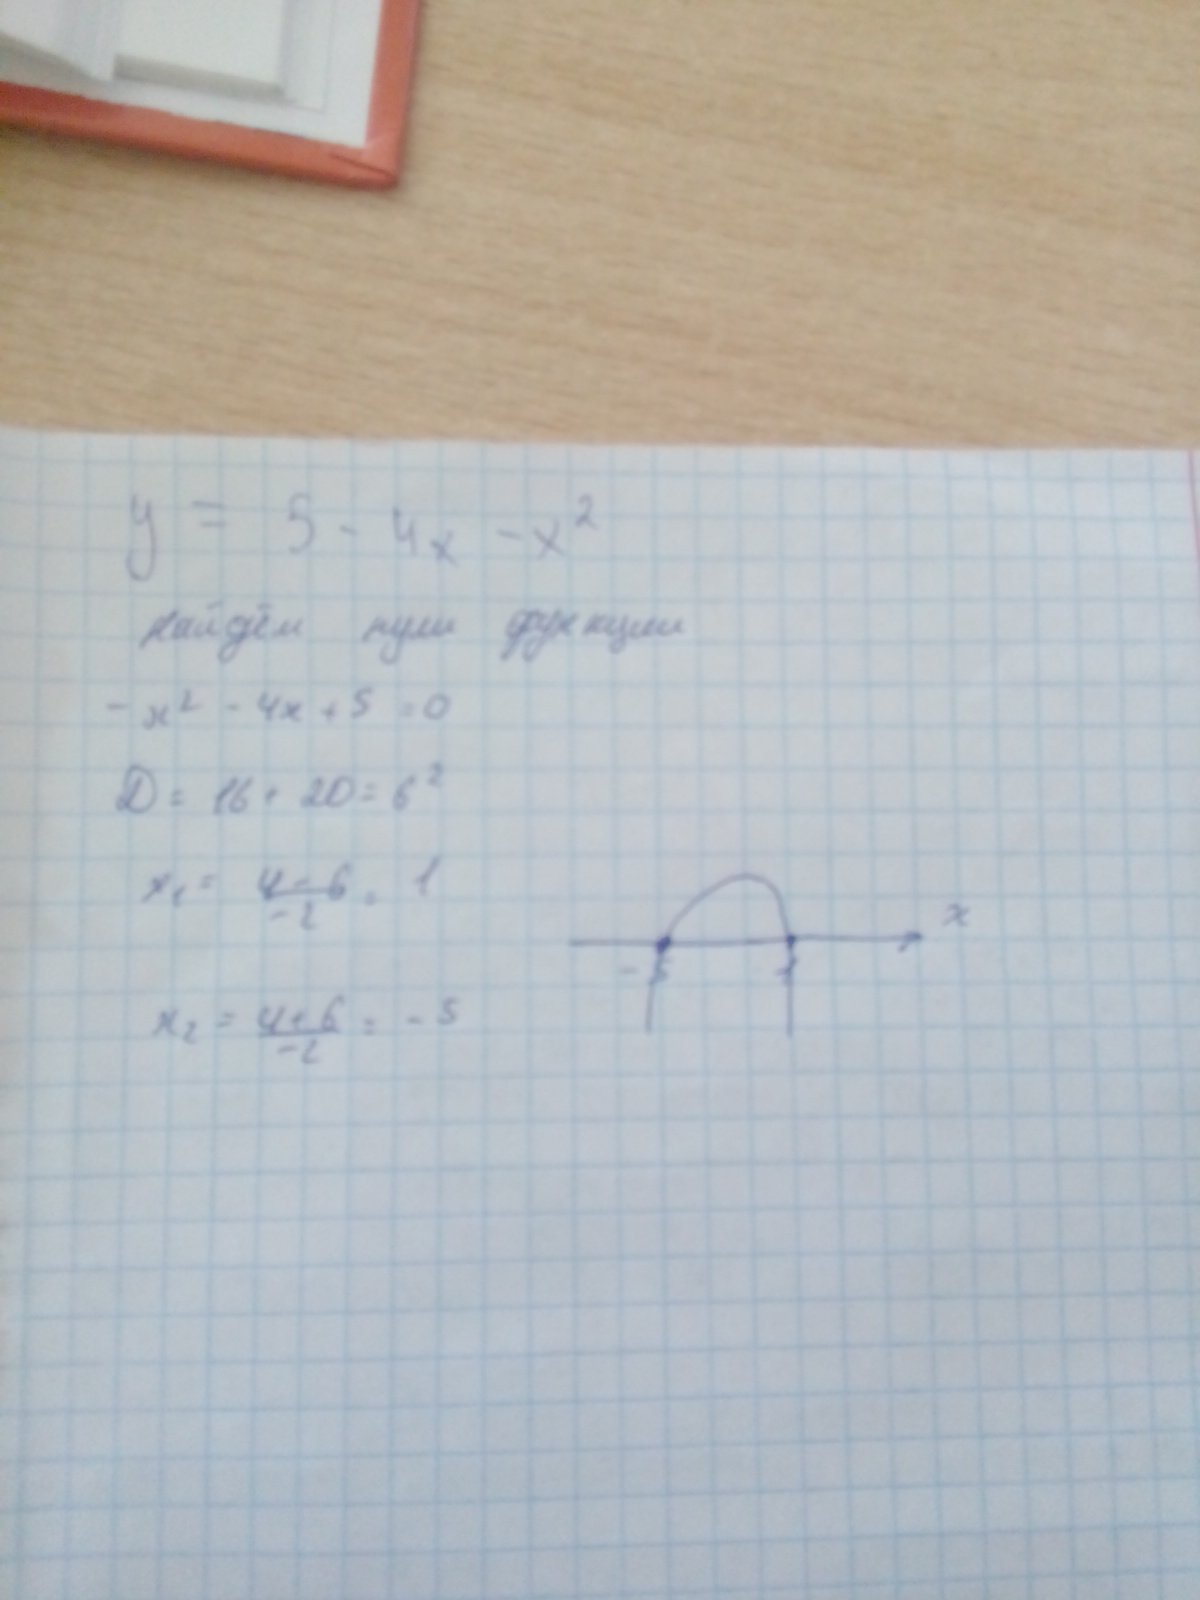 y = 5 - 4x - x²
найдём нули функции
- x² - 4x + 5 = 0
D = 16 + 20 = 6²
x₁ = \frac{4-6}{-2} = 1
x
-5 1
x₂ = \frac{4+6}{-2} = -5